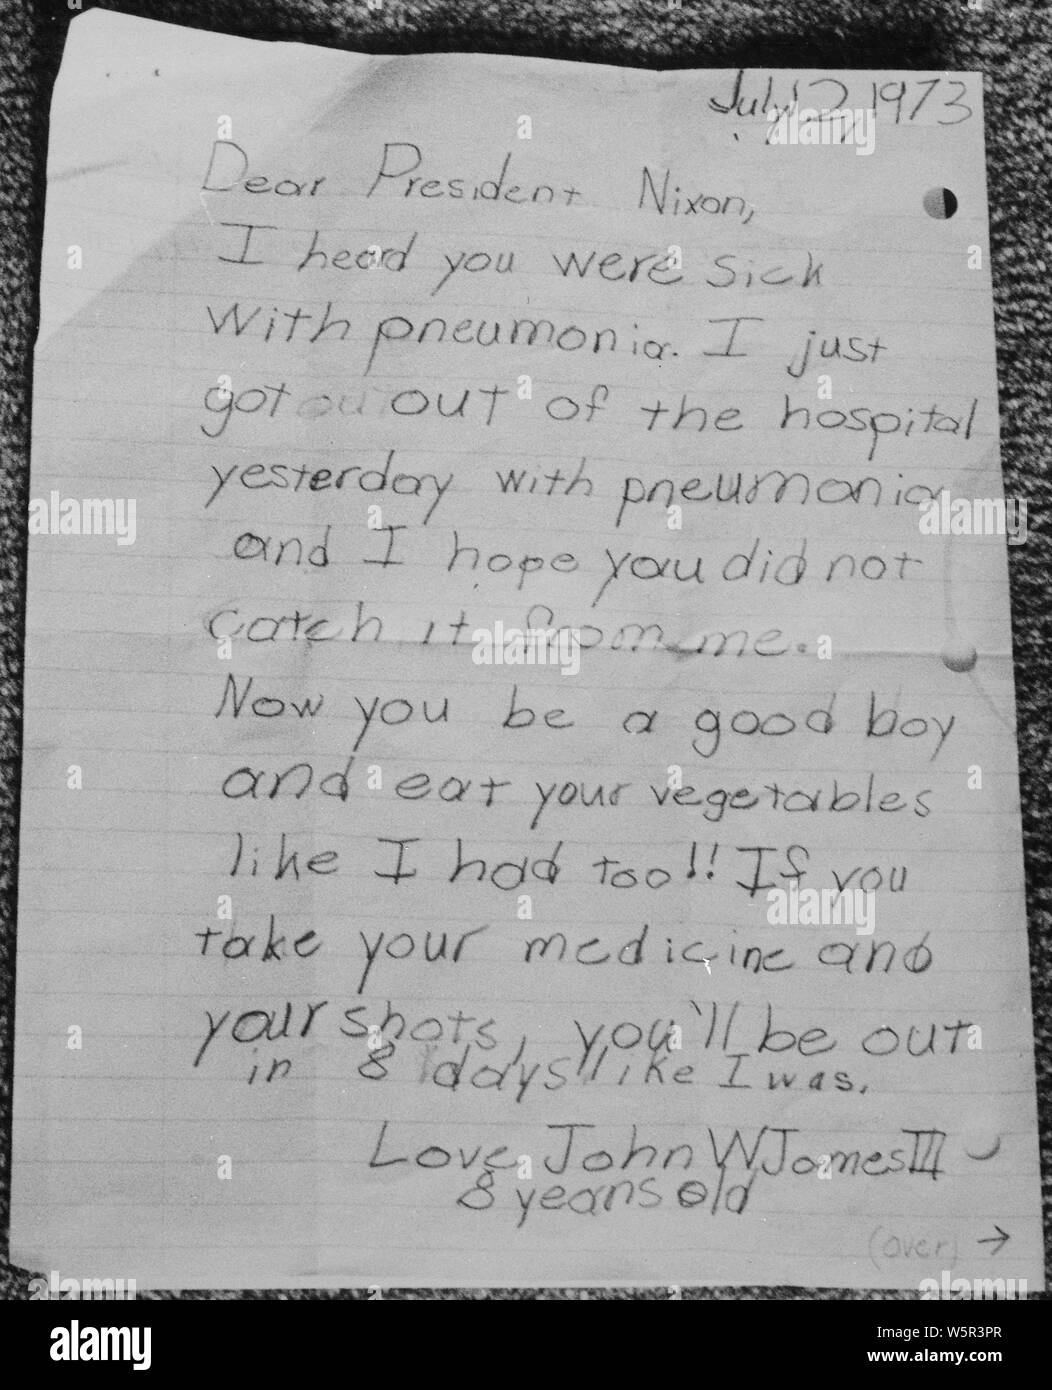 July 12, 1973
Dear President Nixon,
I heard you were sick
with pneumonia. I just
got ou out of the hospital
yesterday with pneumonia
and I hope you did not
catch it from me.
Now you be a good boy
and eat your vegetables
like I had too!! If you
take your medicine and
your shots, you'll be out
in 8 days like I was.
Love John W James III
8 years old
(over) →
alamy
alamy
alamy
alamy
alamy
alamy
alamy
alamy
Image ID: W5R3PR
www.alamy.com